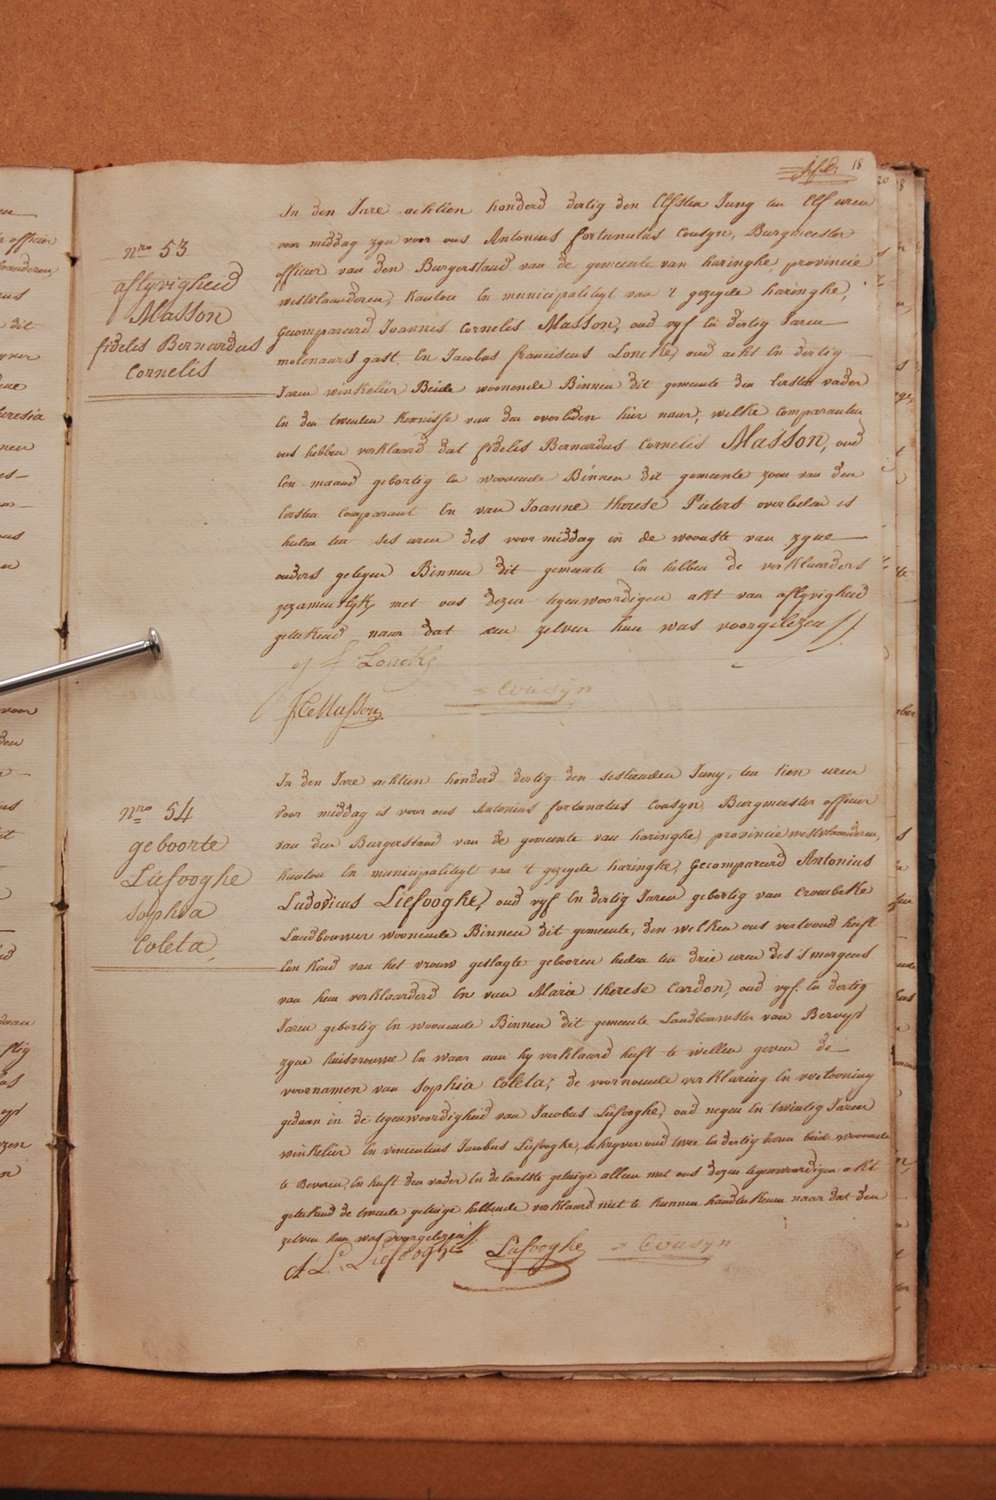 18
nro 53
aflyvigheid
Masson
fidelis Bernardus
Cornelis
In den Jare achtien honderd dertig den Elfsten Juny ten Elf uren
voor middag zyn voor ons Antonius fortunatus Cousyn, Burgmeester
officier van den Burgerstand van de gemeente van haringhe, provincie
westvlaanderen, kanton En municipaliteyt van 't gezegde haringhe,
Gecompareerd Joannes Cornelis Masson, oud vyf En dertig Jaren
molenaers gast En Jacobus franciscusLoncke, oud acht En dertig
Jaren winkelier Beide woonende Binnen dit gemeente den Eersten vader
En den tweeden kennisse van den overleden hier naer, welke comparanten
ons hebben verklaerd dat fidelis Bernardus Cornelis Masson, oud
Een maand gebortig En woonende Binnen dit gemeente zoon van den
Eersten Comparant En van Joanne therese Pieters overleden is
heden ten ses uren des voormiddag in de wooste van zyne
ouders gelegen Binnen dit gemeente En hebben de verklaerders
gezamentlyk met ons dezen tegenwoordigen akt van aflyvigheid
geteekend naer dat aen zelven hun was voorgelezen //
J f Loncke
= Cousyn
J C Masson
nro 54
geboorte
Liefooghe
Sophia
Coleta
In den Jare achtien honderd dertig den sestienden Juny, ten tien uren
voor middag is voor ons Antonius fortunatus Cousyn, Burgmeester officier
van den Burgerstand van de gemeente van haringhe, provincie westvlaanderen,
kanton En municipaliteyt van 't gezegde haringhe, Gecompareerd Antonius
Ludovicus Liefooghe, oud vyf En dertig Jaren gebortig van Crombeke
Landbouwer woonende Binnen dit gemeente, den welken ons vertoond heeft
Een kind van het vrouw geslagte gebooren heden ten drie uren des 's morgens
van hem verklaarderd En van Maria therese Cardon, oud vyf En dertig
Jaren gebortig En woonende Binnen dit gemeente Landbouwster van Beroep
zyne huisvrouwe En waer aen hy verklaerd heeft te willen geven de
voornamen van Sophia Coleta; de voornoemde verklaring En vertooning
gedaen in de tegenwoordigheid van Jacobus Liefooghe, oud negen En twintig Jaren
winkelier En vincentius Jacobus Liefooghe, schryver oud twee En dertig Jaren beide woonende
te Beveren, En heeft den vader En de laatste getuige alleen met ons dezen tegenwoordigen akt
geteekend de tweede getuige hebbende verklaerd niet te kunnen handteekenen naer dat den
zelven hun was voorgelezen //
A L Liefooghe Liefooghe = Cousyn